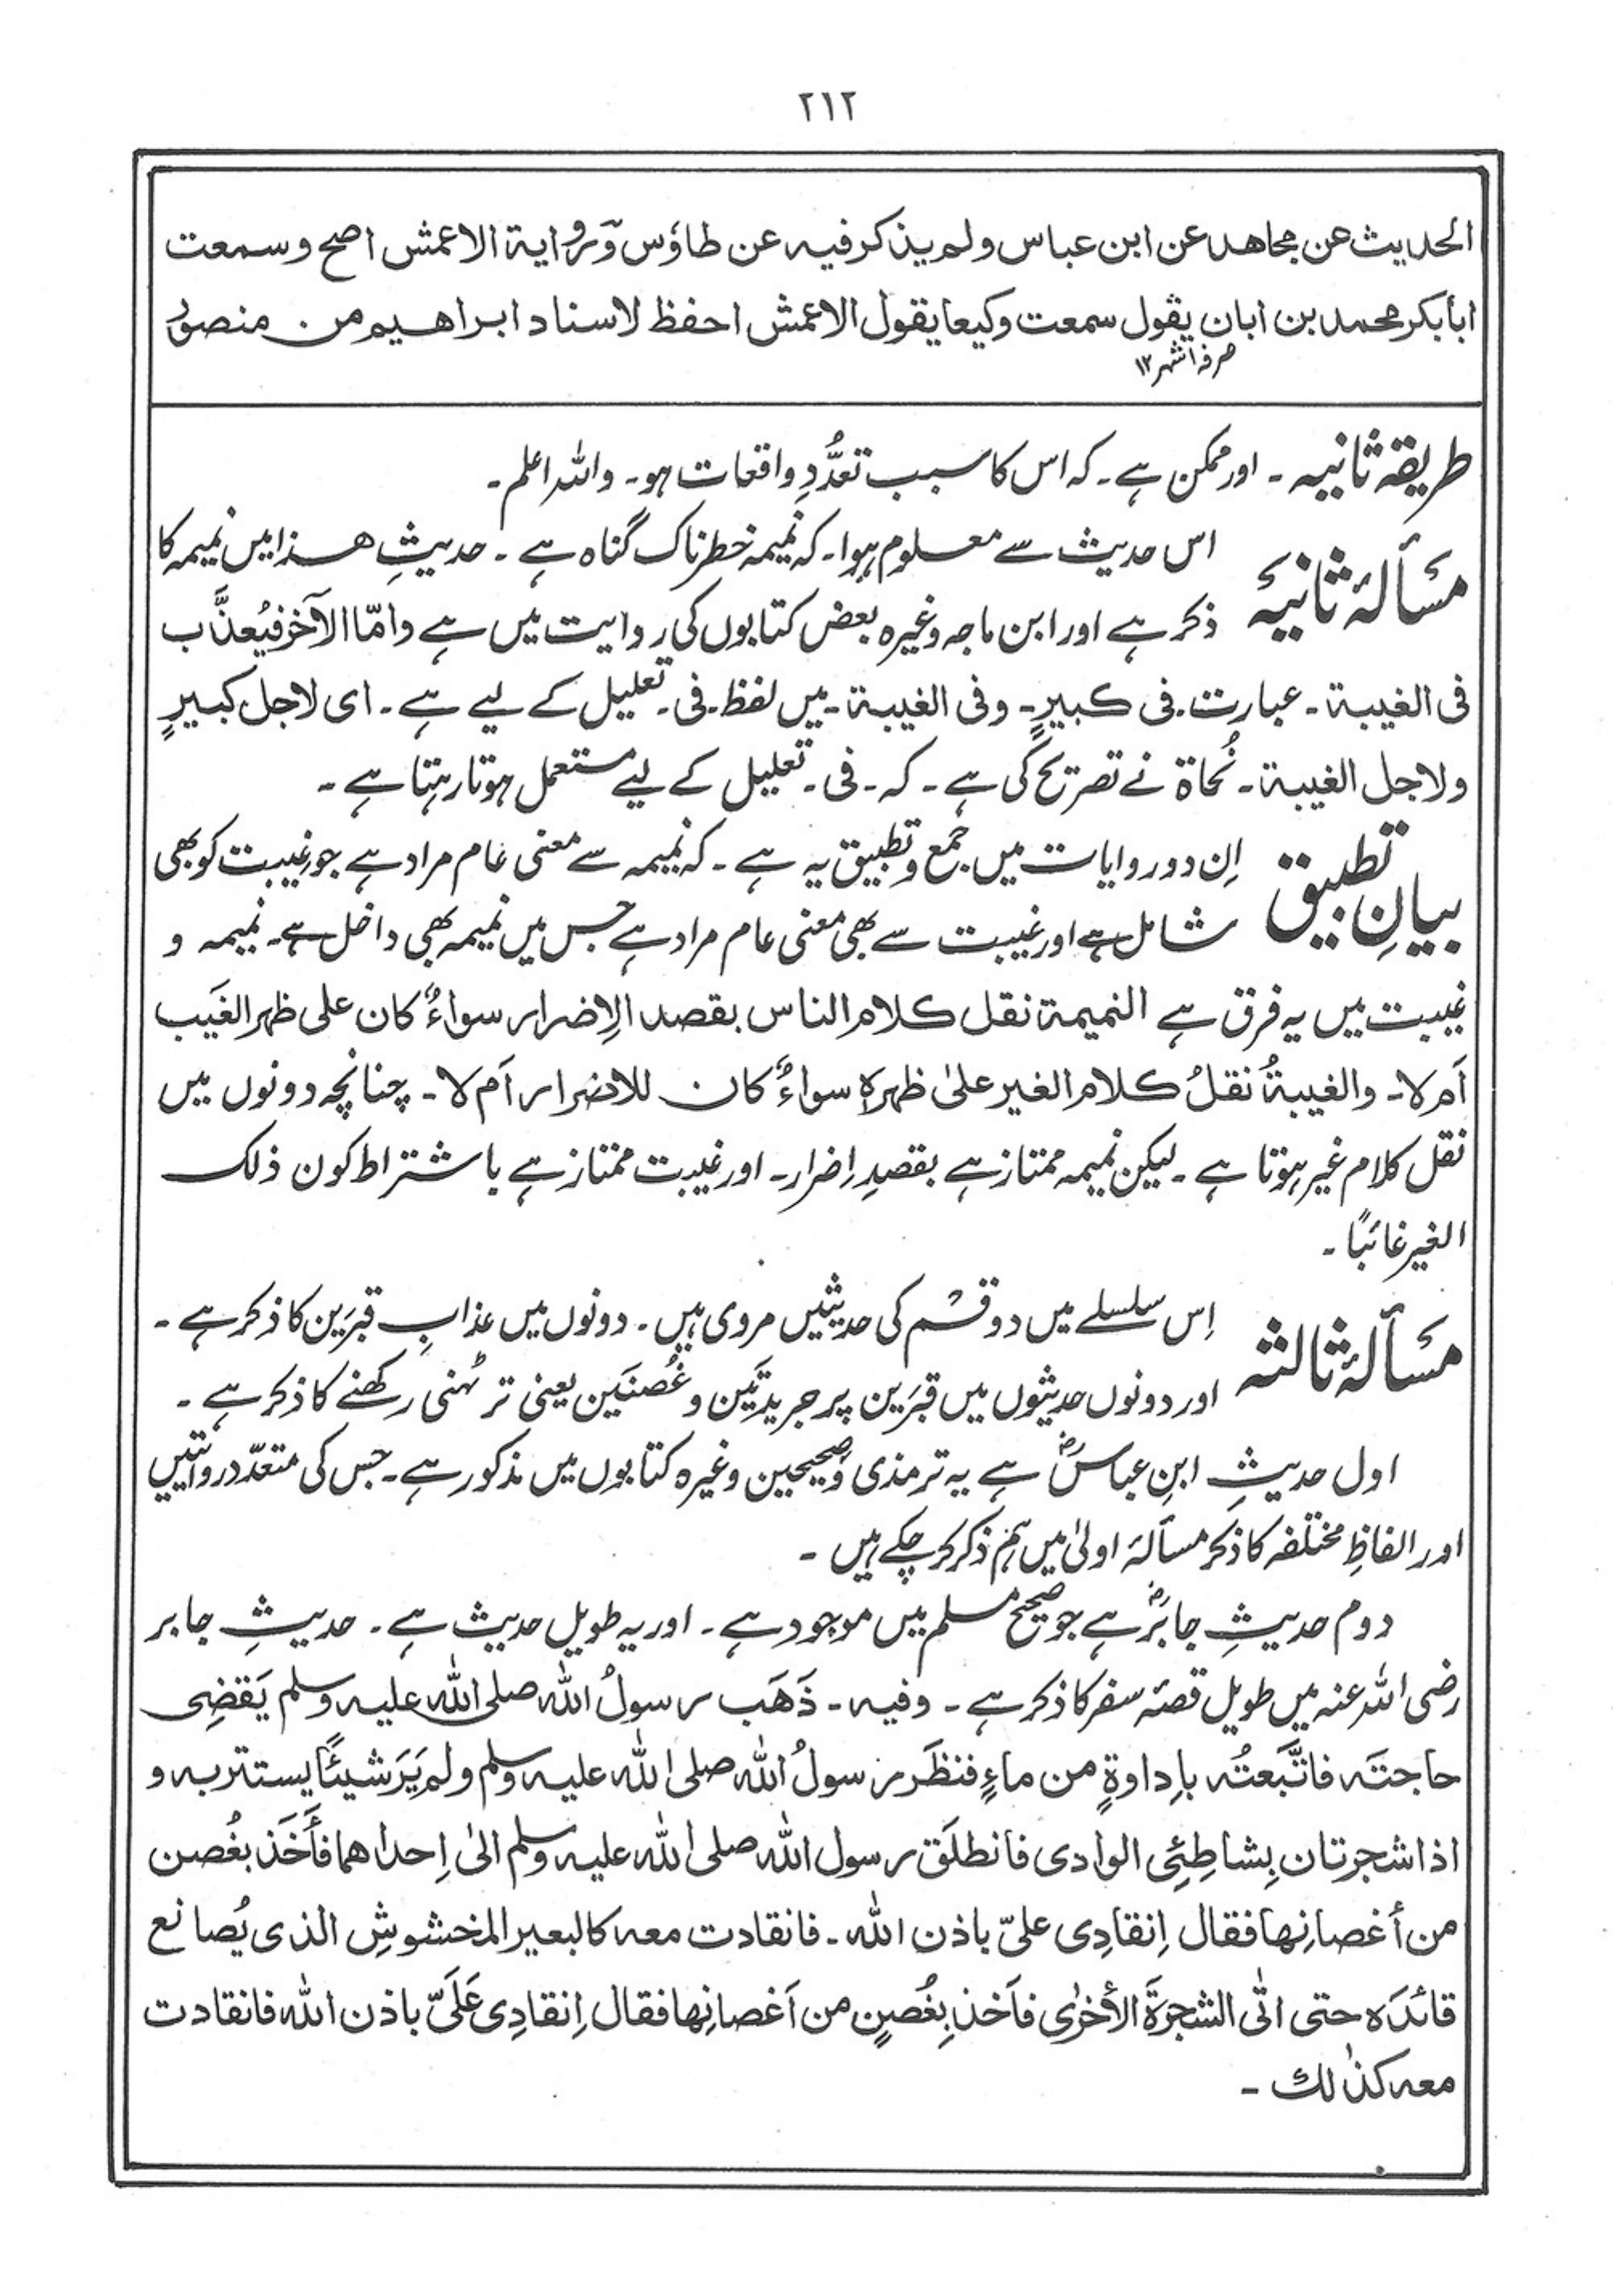 ۲۱۲
الحدیث عن مجاهد عن ابن عباس ولم یذکر فیه عن طاؤس وروایة الاعمش اصح وسمعت
ابابکر محمد بن ابان یقول سمعت وکیعا یقول الاعمش احفظ لاسناد ابراهیم من منصور
صرفہ اشہر ۱۲
طریقۂ ثانیہ ۔ اور ممکن ہے ۔ کہ اس کا سبب تعدُّدِ واقعات ہو ۔ واللہ اعلم ۔
مسألۂ ثانیہ اس حدیث سے معلوم ہوا ۔ کہ نمیمہ خطرناک گناہ ہے ۔ حدیثِ ھذا میں نمیمہ کا
ذکر ہے اور ابن ماجہ وغیرہ بعض کتابوں کی روایت میں ہے وامّا الآخر فیُعذَّب
فی الغیبة ۔ عبارت ۔ فی کبیرٍ ۔ وفی الغیبة ۔ میں لفظ ۔ فی ۔ تعلیل کے لیے ہے ۔ ای لاجل کبیرٍ
ولاجل الغیبة ۔ نُحاۃ نے تصریح کی ہے ۔ کہ ۔ فی ۔ تعلیل کے لیے مستعمل ہوتا رہتا ہے ۔
بیانِ تطبیق اِن دو روایات میں جمع وتطبیق یہ ہے ۔ کہ نمیمہ سے معنی عام مراد ہے جو غیبت کو بھی
شامل ہے اور غیبت سے بھی معنی عام مراد ہے جس میں نمیمہ بھی داخل ہے ۔ نمیمہ و
غیبت میں یہ فرق ہے النمیمة نقل کلام الناس بقصد الإضرار سواءٌ کان علی ظهر الغَیب
اَم لا ۔ والغیبةُ نقلُ کلام الغیر علیٰ ظهرہٖ سواءٌ کان للاضرار اَم لا ۔ چنانچہ دونوں میں
نقل کلام غیر ہوتا ہے ۔ لیکن نمیمہ ممتاز ہے بقصدِ اِضرار ۔ اور غیبت ممتاز ہے باشتراط کون ذلک
الغیر غائبًا ۔
مسألۂ ثالثہ اِس سلسلے میں دو قسم کی حدیثیں مروی ہیں ۔ دونوں میں عذابِ قبرَین کا ذکر ہے ۔
اور دونوں حدیثوں میں قبرَین پر جریدتَین و غُصنَین یعنی تر ٹہنی رکھنے کا ذکر ہے ۔
اول حدیثِ ابنِ عباسؓ ہے یہ ترمذی وصحیحین وغیرہ کتابوں میں مذکور ہے ۔ جس کی متعدّد روایتیں
اور الفاظِ مختلفہ کا ذکر مسألۂ اولیٰ میں ہم ذکر کر چکے ہیں ۔
دوم حدیثِ جابرؓ ہے جو صحیح مسلم میں موجود ہے ۔ اور یہ طویل حدیث ہے ۔ حدیثِ جابر
رضی اللہ عنہ میں طویل قصۂ سفر کا ذکر ہے ۔ وفیه ۔ ذَهَب رسولُ الله صلی الله علیه وسلم یَقضِی
حاجتَه فاتَّبَعتُه بإداوةٍ من ماءٍ فنظَر رسولُ الله صلی الله علیه وسلم ولم یَرَ شیئًا یستتر به و
اذا شجرتان بِشاطِئِی الوادی فانطلَق رسول الله صلی الله علیه وسلم الیٰ اِحداهما فأخَذ بغُصن
من أغصانِها فقال اِنقادِی علیّ باذن الله ۔ فانقادت معه کالبعیر المخشوشِ الذی یُصانع
قائدَہ حتی اتٰی الشجرةَ الأخرٰی فاَخذ بِغُصنٍ من اَغصانِها فقال اِنقادِی عَلَیّ باذن الله فانقادت
معه کذٰلك ۔